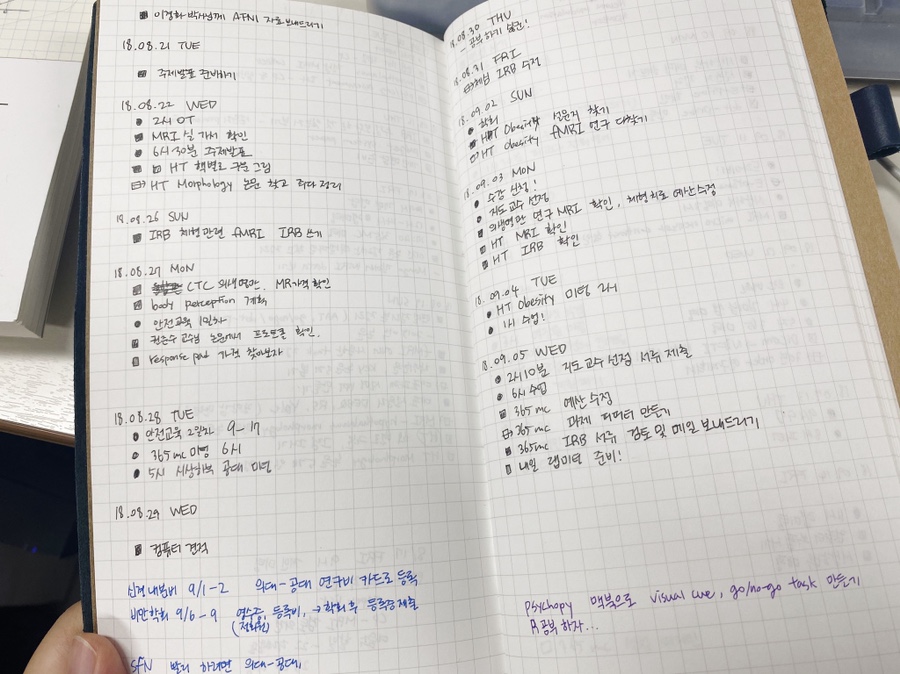 이경화 박사님께 AFNI 자료 보내드리기
18.08.21 TUE
주제발표 준비하기
18.08.22 WED
2시 OT
MRI 실 가서 확인
6시 30분 주제발표
HT 핵별로 구분 그림
HT Morphology 논문 찾고 정리
18.08.26 SUN
IRB 체형관련 fMRI IRB 쓰기
18.08.27 MON
CTC 의생명관, MR가격 확인
body perception 계획
안전교육 1일차
권준수 교수님 논문에서 프로토콜 확인.
response pad 가격 찾아보자
18.08.28 TUE
안전교육 2일차 9-17
365mc 미팅 6시
5시 시상하부 공대 미팅
18.08.29 WED
컴퓨터 견적
신경내분비 9/1-2 의대-공대 연구비 카드로 등록
비만학회 9/6-9 영수증, 등록비, → 학회 후 등록증 제출
(전화원)
SfN 발리 하려면 의대-공대,
18.08.30 THU
- 공부하기
18.08.31 FRI
체형 IRB 수정
18.09.02 SUN
학회
HT Obesity 설문지 찾기
HT obesity fMRI 연구 더찾기
18.09.03 MON
수강 신청!
지도교수 선정
의생명관 연구 MRI 확인, 체형치료 예산수정
HT MRI 확인
HT IRB 확인
18.09.04 TUE
HT Obesity 미팅 2시
1시 수업!
18.09.05 WED
2시 10분 지도교수 선정 서류 제출
6시 수업
365mc 예산 수정
365mc 과제 만들기
365mc IRB 서류 검토 및 메일 보내드리기
내일 랩미팅 준비!
Psychopy 맥북으로 visual cue, go/no-go task 만들기
R공부 하자...